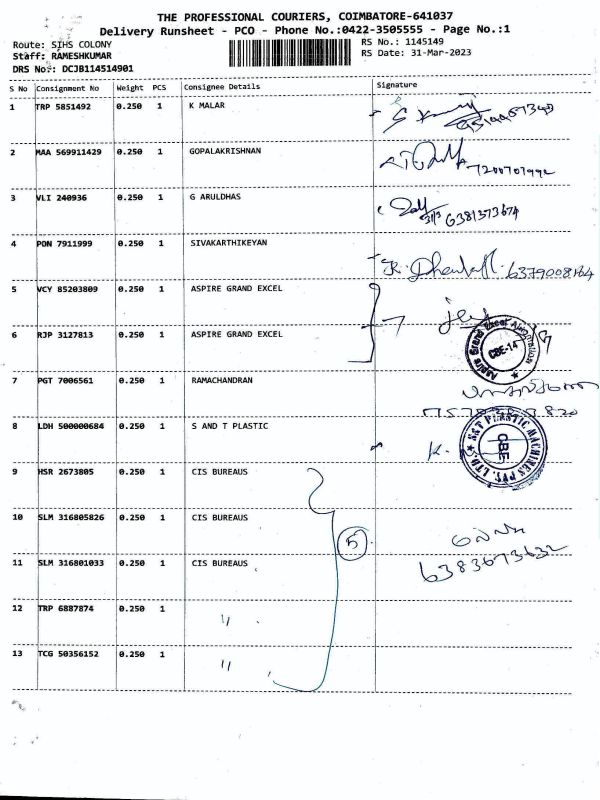 THE PROFESSIONAL COURIERS, COIMBATORE-641037
Delivery Runsheet - PCO - Phone No.:0422-3505555 - Page No.:1
Route: SIHS COLONY
RS No.: 1145149
Staff: RAMESHKUMAR
RS Date: 31-Mar-2023
DRS No: DCJB114514901
S No Consignment No Weight PCS Consignee Details Signature
1 TRP 5851492 0.250 1 K MALAR
2 MAA 569911429 0.250 1 GOPALAKRISHNAN
7200707992
3 VLI 240936 0.250 1 G ARULDHAS
31/3 6381373674
4 PON 7911999 0.250 1 SIVAKARTHIKEYAN
6379008164
5 VCY 85203809 0.250 1 ASPIRE GRAND EXCEL
6 RJP 3127813 0.250 1 ASPIRE GRAND EXCEL
Aspire Grand Excel Automation
CBE-14
7 PGT 7006561 0.250 1 RAMACHANDRAN
8 LDH 500000684 0.250 1 S AND T PLASTIC
S&T PLASTIC MACHINES PVT. LTD.
CBE
9 HSR 2673805 0.250 1 CIS BUREAUS
10 SLM 316805826 0.250 1 CIS BUREAUS
5
11 SLM 316801033 0.250 1 CIS BUREAUS
6383673632
12 TRP 6887874 0.250 1 "
13 TCG 50356152 0.250 1 "